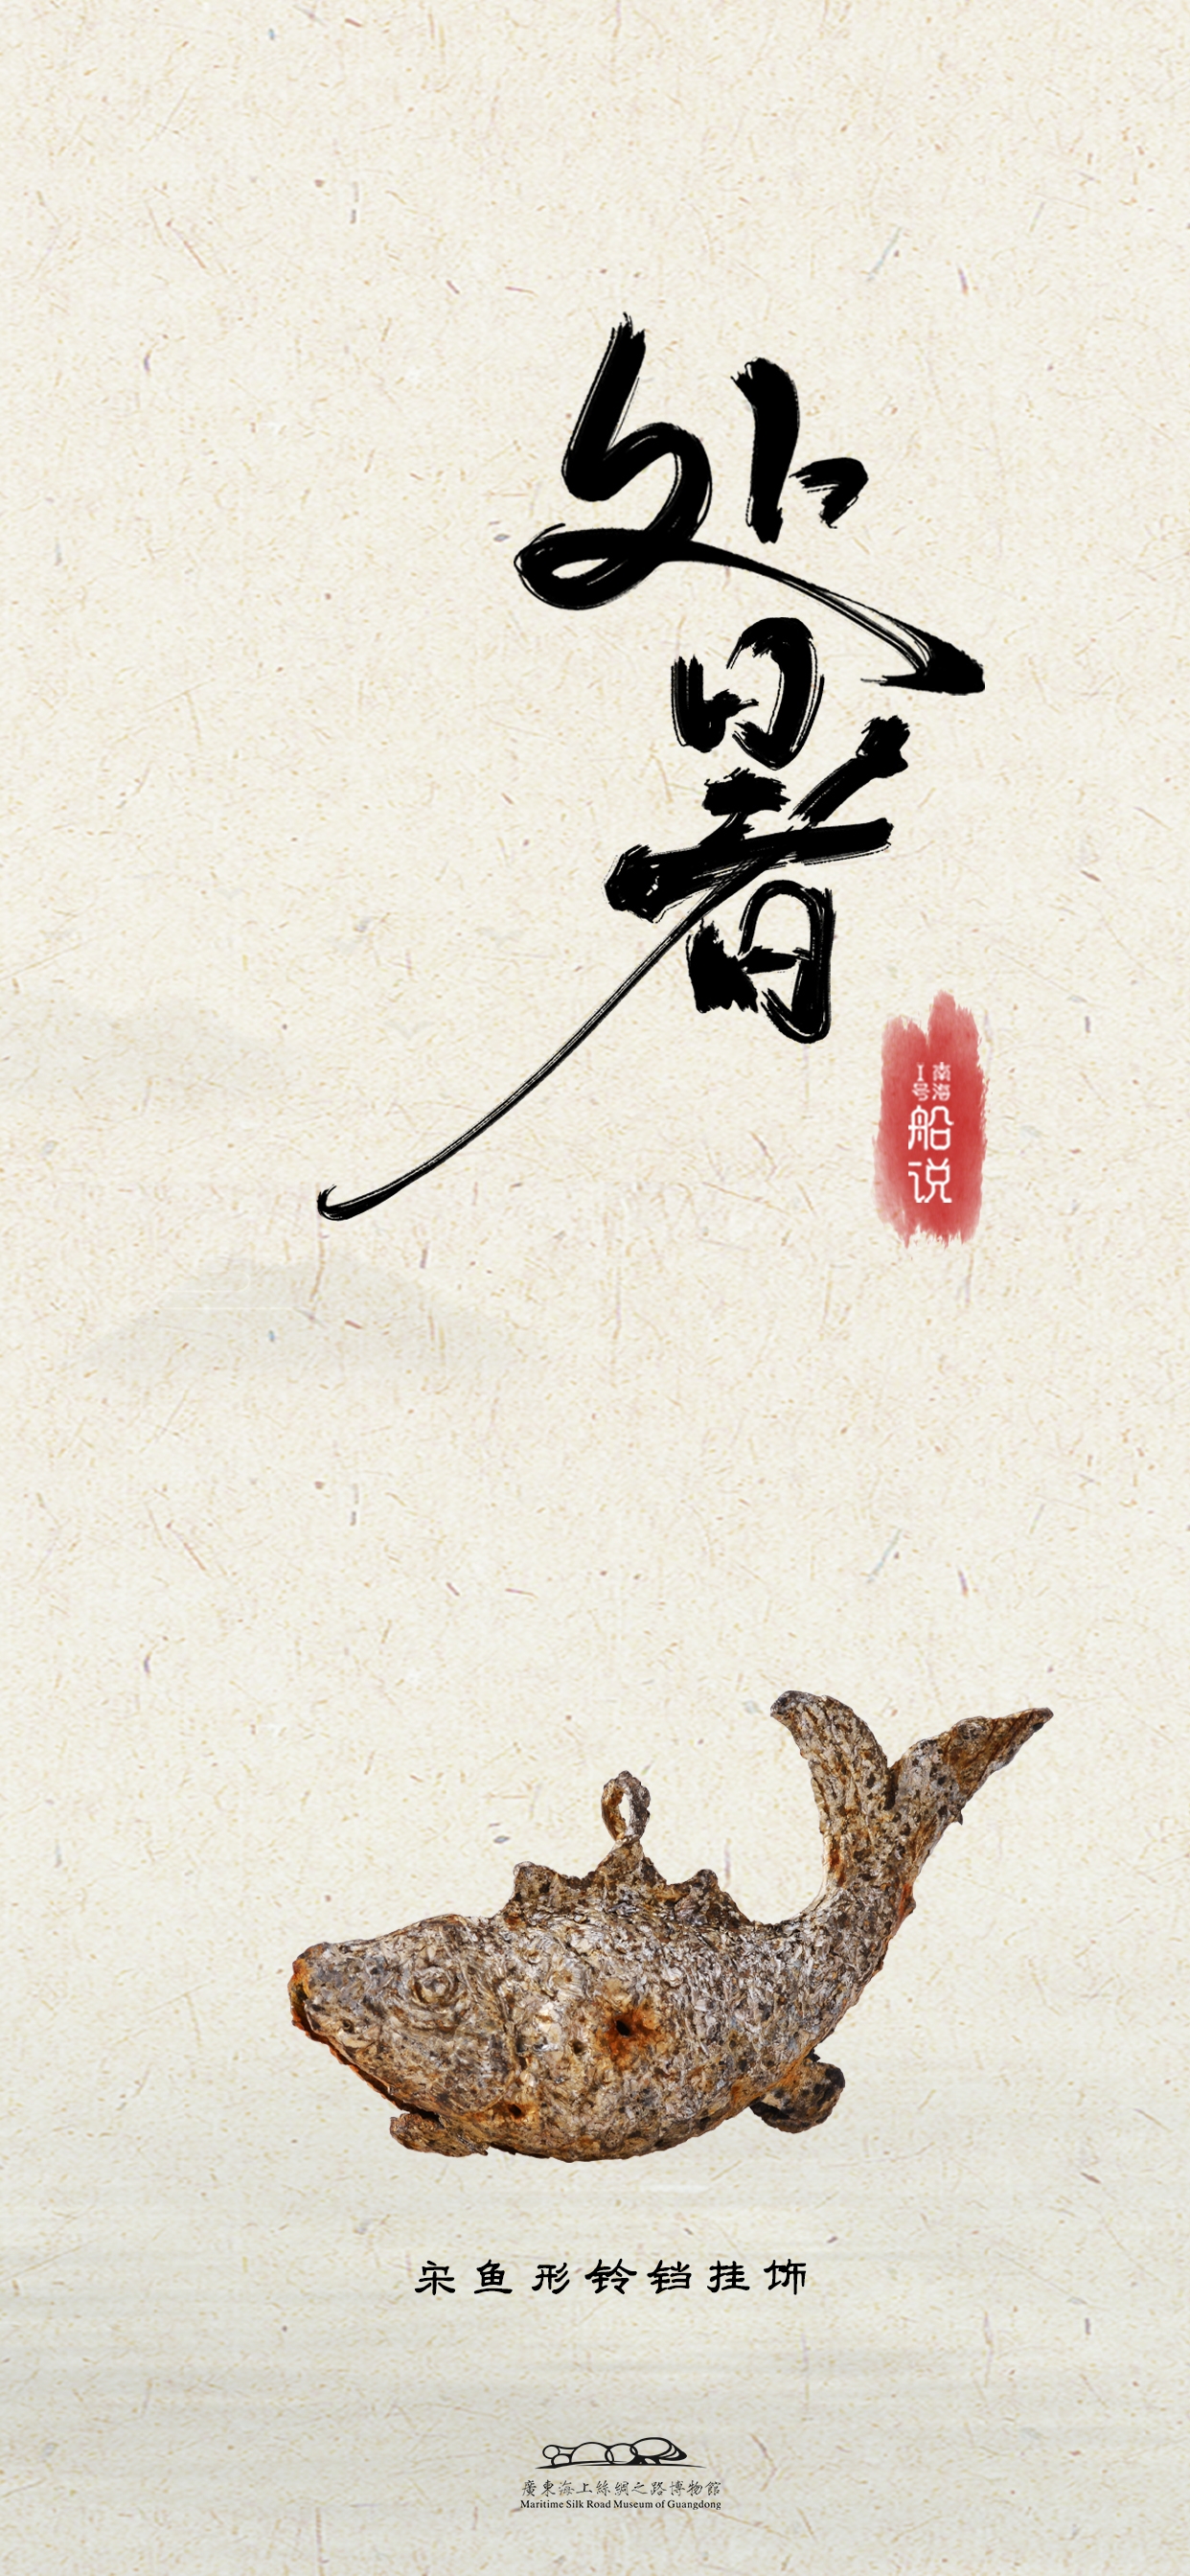 处暑
南海
I号
船说
宋鱼形铃铛挂饰
廣東海上絲綢之路博物館
Maritime Silk Road Museum of Guangdong